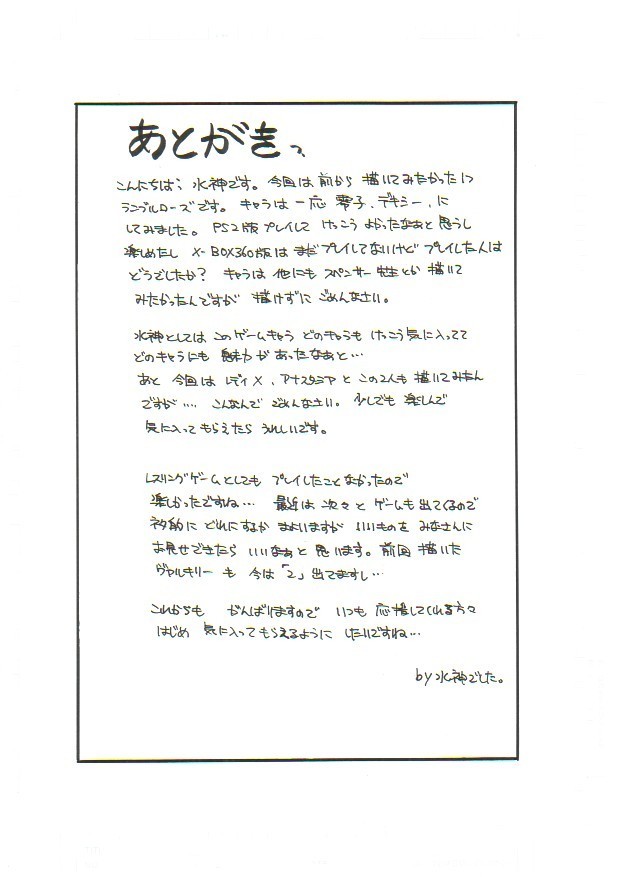 あとがきっ
こんにちは、水神です。今回は前から描いてみたかった
ランブルローズです。キャラは一応零子、デキシー、に
してみました。PS2版プレイして けっこうよかったなあと思うし
楽しめたし X-BOX360版はまだプレイしてないけど プレイした人は
どうでしたか? キャラは他にも スペンサー先生とか描いて
みたかったんですが 描けずに ごめんなさい。
水神としては このゲームキャラ どのキャラも けっこう気に入ってて
どのキャラにも 魅力があったなあと…
あと 今回は レディX、アナスタシアと この2人も 描いてみたん
ですが… こんなんで ごめんなさい。少しでも 楽しんで
気に入ってもらえたら うれしいです。
レスリングゲームとしても プレイしたことなかったので
楽しかったですね… 最近は 次々と ゲームも出てくるので
ネタ的に どれにするか まよいますが いいものを みなさんに
お見せできたら いいなぁと 思います。前回 描いた
ヴァルキリー も 今は「2」出てますし…
これからも がんばりますので いつも 応援してくれる方々
はじめ 気に入ってもらえるように したいですね…
by水神でした。